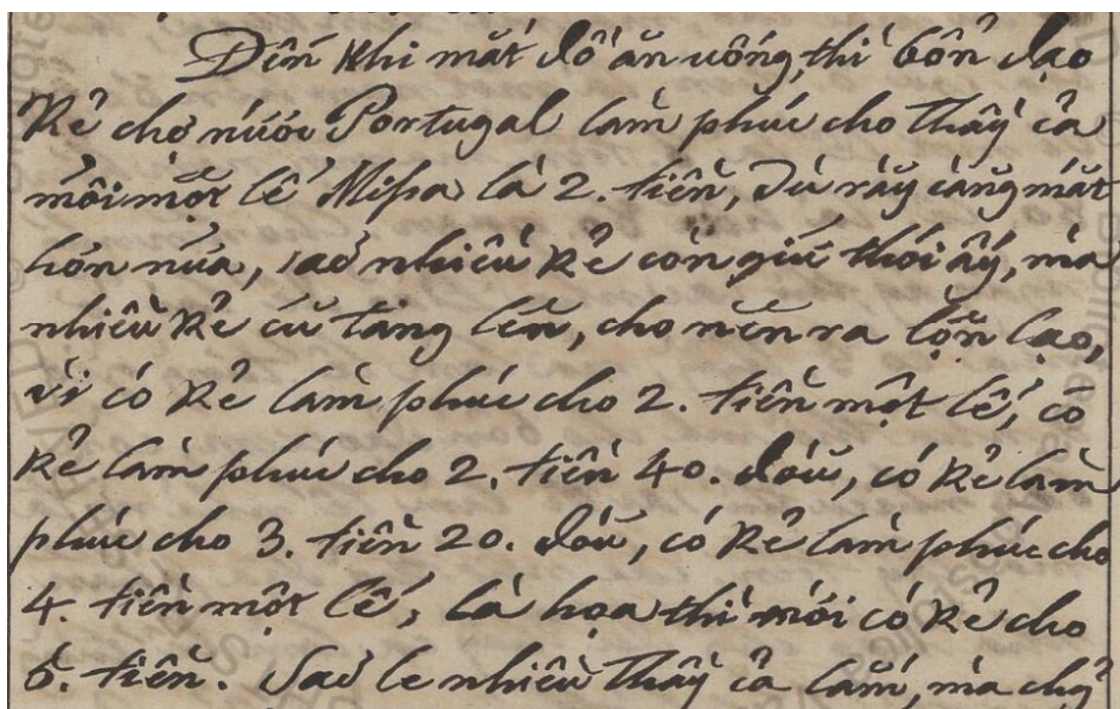 Đến khi mắt đồ ăn uống, thì bổn đạo
Kẻ chợ nước Portugal làm phúc cho thầy cả
mỗi một lễ Missa là 2. tiền, dù rầy càng mắt
hơn nữa, sao nhiều kẻ còn giữ thói ấy, mà
nhiều kẻ cũ tăng lên, cho nên ra lộn lạo,
vì có kẻ làm phúc cho 2. tiền một lễ, có
kẻ làm phúc cho 2. tiền 40. đấu, có kẻ làm
phúc cho 3. tiền 20. đấu, có kẻ làm phúc cho
4. tiền một lễ, là họa thì mới có kẻ cho
6. tiền. Sao le nhiều thầy cả lắm, mà chg̉